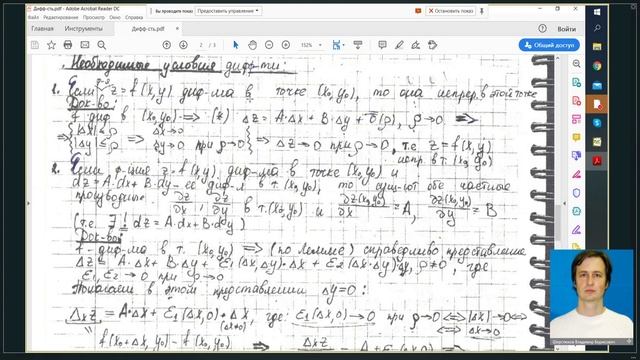 Дифф-сть.pdf - Adobe Acrobat Reader DC
Вы проводите показ
Предоставить управление
Остановить показ
Главная
Инструменты
Дифф-сть.pdf ×
Войти
2 / 3
152%
Общий доступ
Необходимые условия дифф-ти:
1. Если ф-я z=f(x,y) диф-ма в точке (x₀,y₀), то она непрер. в этой точке
Док-во:
f диф в (x₀,y₀) => (*) Δz = A·Δx + B·Δy + ō(ρ), ρ→0 =>
=> {|Δx| ≤ ρ => Δx→0
|Δy| ≤ ρ Δy→0 при ρ→0} => Δz→0 при ρ→0, т.е. z=f(x,y)
непр. в т. (x₀,y₀)
2. Если ф-ция z=f(x,y) диф-ма в точке (x₀,y₀) и
dz=A·dx+B·dy - её диф-л в т. (x₀,y₀), то сущ-ют обе частные
производные ∂z/∂x, ∂z/∂y в т.(x₀,y₀) и ∂z(x₀,y₀)/∂x = A, ∂z(x₀,y₀)/∂y = B
(т.е. ∃! dz=A·dx+B·dy)
Док-во:
f - диф-ма в т. (x₀,y₀) => (по Лемме) справедливо представление
Δz = A·Δx + B·Δy + ε₁(Δx,Δy)·Δx + ε₂(Δx,Δy)Δy, ρ≠0, где
ε₁, ε₂ → 0 при ρ→0
Полагаем в этом представлении Δy=0:
ΔₓZ = A·Δx + ε₁(Δx,0)·Δx, где ε₁(Δx,0)→0 при ρ→0 <=> |Δx|→0 <=>
(Δx≠0) <=> Δx→0
f(x₀+Δx, y₀) - f(x₀,y₀) => ΔₓZ = A + ε₁(Δx,0)
Шерстюков Владимир Борисович